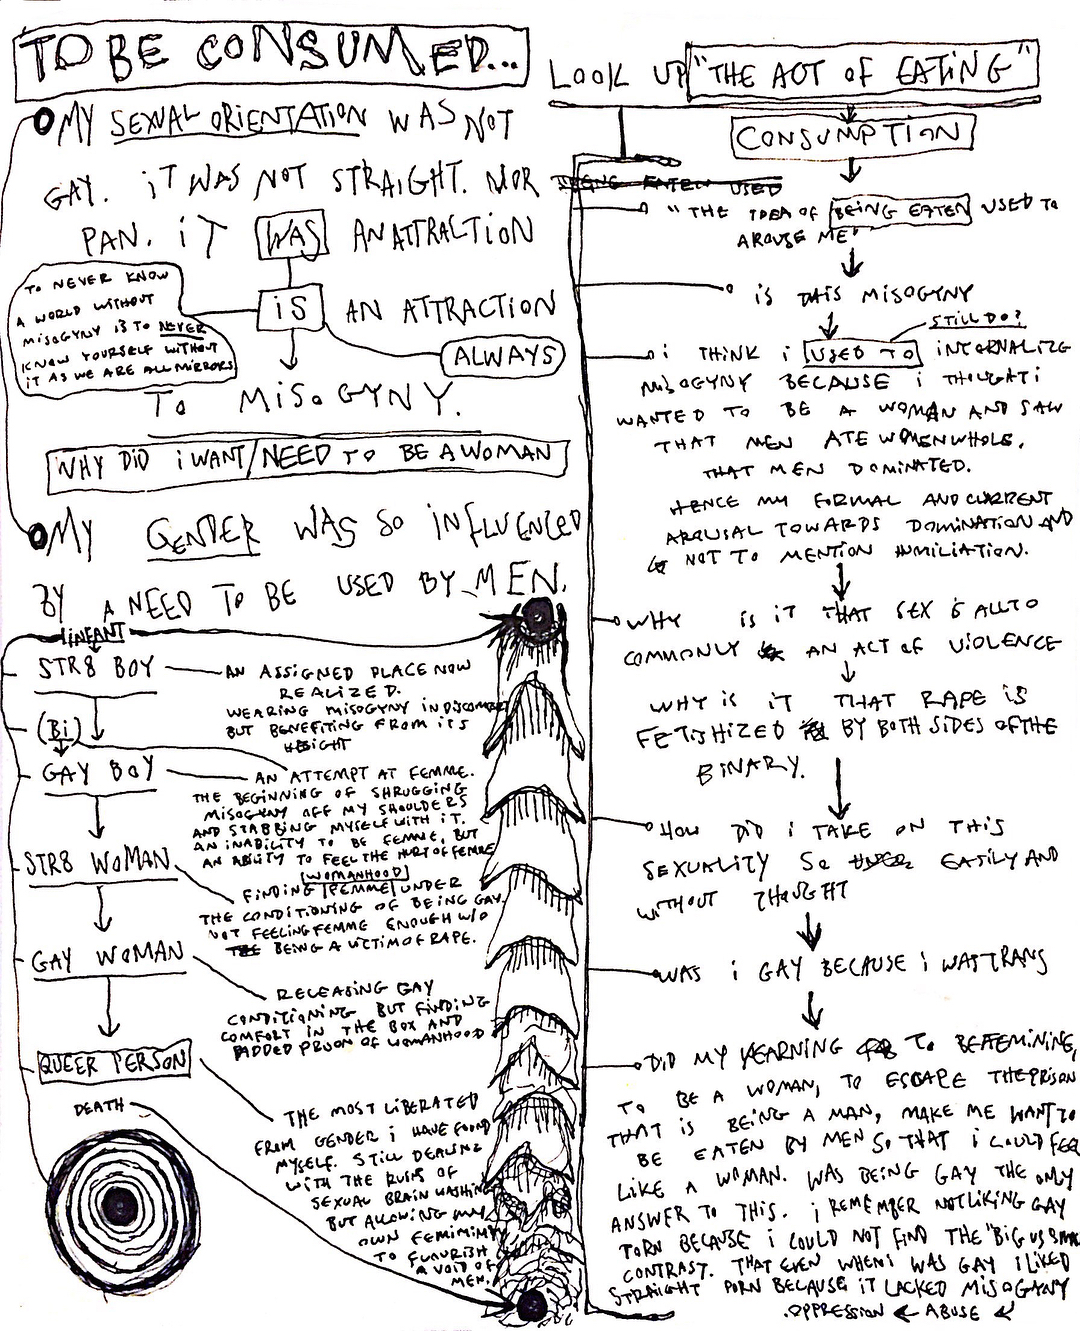 TO BE CONSUMED...
MY SEXUAL ORIENTATION WAS NOT
GAY. iT WAS NOT STRAIGHT. NOR
PAN. iT WAS AN ATTRACTION
iS AN ATTRACTION
ALWAYS
TO MiSOGYNY.
TO NEVER KNOW
A WORLD WITHOUT
MISOGYNY IS TO NEVER
KNOW YOURSELF WITHOUT
IT AS WE ARE ALL MIRRORS
WHY DID i WANT/NEED TO BE A WOMAN
MY GENDER WAS SO INFLUENCED
BY A NEED TO BE USED BY MEN.
INFANT
STR8 BOY
AN ASSIGNED PLACE NOW
REALIZED.
WEARING MISOGYNY IN DISCOMFORT
BUT BENEFITING FROM ITS
WEIGHT
(Bi)
GAY BOY
AN ATTEMPT AT FEMME.
THE BEGINNING OF SHRUGGING
MISOGYNY OFF MY SHOULDERS
AND STABBING MYSELF WITH IT.
AN INABILITY TO BE FEMME, BUT
AN ABILITY TO FEEL THE HURT OF FEMME
STR8 WOMAN
WOMANHOOD
FINDING FEMME UNDER
THE CONDITIONING OF BEING GAY.
NOT FEELING FEMME ENOUGH W/O
BEING A VICTIM OF RAPE.
GAY WOMAN
RELEASING GAY
CONDITIONING BUT FINDING
COMFORT IN THE BOX AND
PADDED PRISON OF WOMANHOOD
QUEER PERSON
THE MOST LIBERATED
FROM GENDER i HAVE FOUND
MYSELF. STILL DEALING
WITH THE RUINS OF
SEXUAL BRAIN WASHING
BUT ALLOWING MY
OWN FEMIMIMITY
TO FLOURISH
A VOID OF
MEN.
DEATH
LOOK UP "THE ACT OF EATING"
CONSUMPTION
EATEN USED
"THE IDEA OF BEING EATEN USED TO
AROUSE ME"
IS THIS MISOGYNY
STILL DO?
i THINK i USED TO INTERNALIZE
MISOGYNY BECAUSE i THOUGHT i
WANTED TO BE A WOMAN AND SAW
THAT MEN ATE WOMEN WHOLE.
THAT MEN DOMINATED.
HENCE MY FORMAL AND CURRENT
AROUSAL TOWARDS DOMINATION AND
NOT TO MENTION HUMILIATION.
WHY IS iT THAT SEX IS ALL TO
COMMONLY AN ACT OF VIOLENCE
WHY IS IT THAT RAPE IS
FETISHIZED BY BOTH SIDES OF THE
BINARY.
HOW DID i TAKE ON THIS
SEXUALITY SO EASILY AND
WITHOUT THOUGHT
WAS i GAY BECAUSE i WAS TRANS
DID MY YEARNING TO BE FEMININE,
TO BE A WOMAN, TO ESCAPE THE PRISON
THAT IS BEING A MAN, MAKE ME WANT TO
BE EATEN BY MEN SO THAT i COULD FEEL
LIKE A WOMAN. WAS BEING GAY THE ONLY
ANSWER TO THIS. i REMEMBER NOT LIKING GAY
PORN BECAUSE i COULD NOT FIND THE "BIG VS SMALL
CONTRAST. THAT EVEN WHEN i WAS GAY i LIKED
STRAIGHT PORN BECAUSE IT LACKED MISOGANY
OPPRESSION ← ABUSE